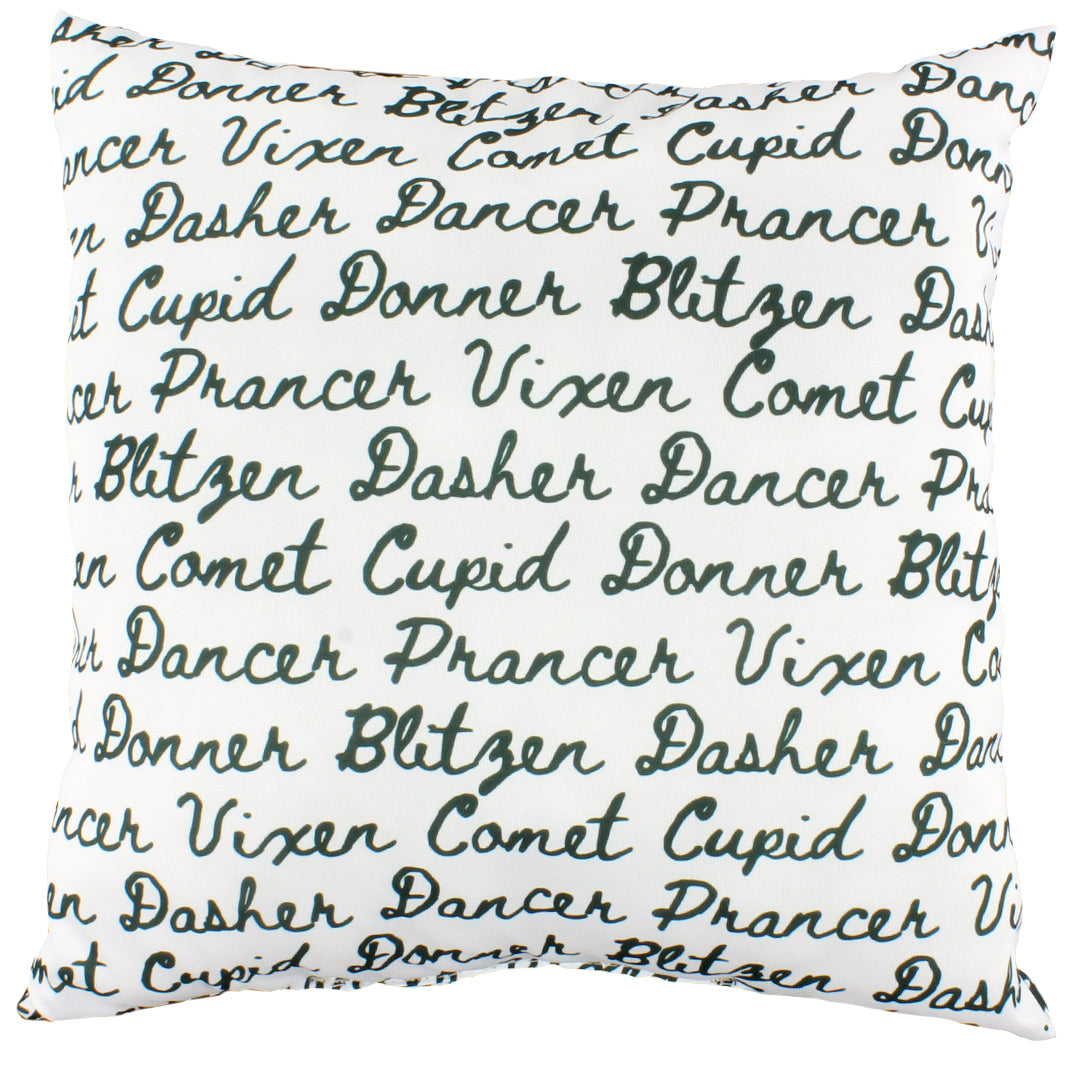 Dasher
Donner Blitzen Dasher Dancer
Vixen Comet Cupid Donn
Dasher Dancer Prancer Vi
et Cupid Donner Blitzen Dash
cer Prancer Vixen Comet Cup
Blitzen Dasher Dancer Pra
en Comet Cupid Donner Blitzen
Dancer Prancer Vixen Co
Donner Blitzen Dasher Dance
ncer Vixen Comet Cupid Donn
en Dasher Dancer Prancer Vi
met Cupid Donner Blitzen Dash